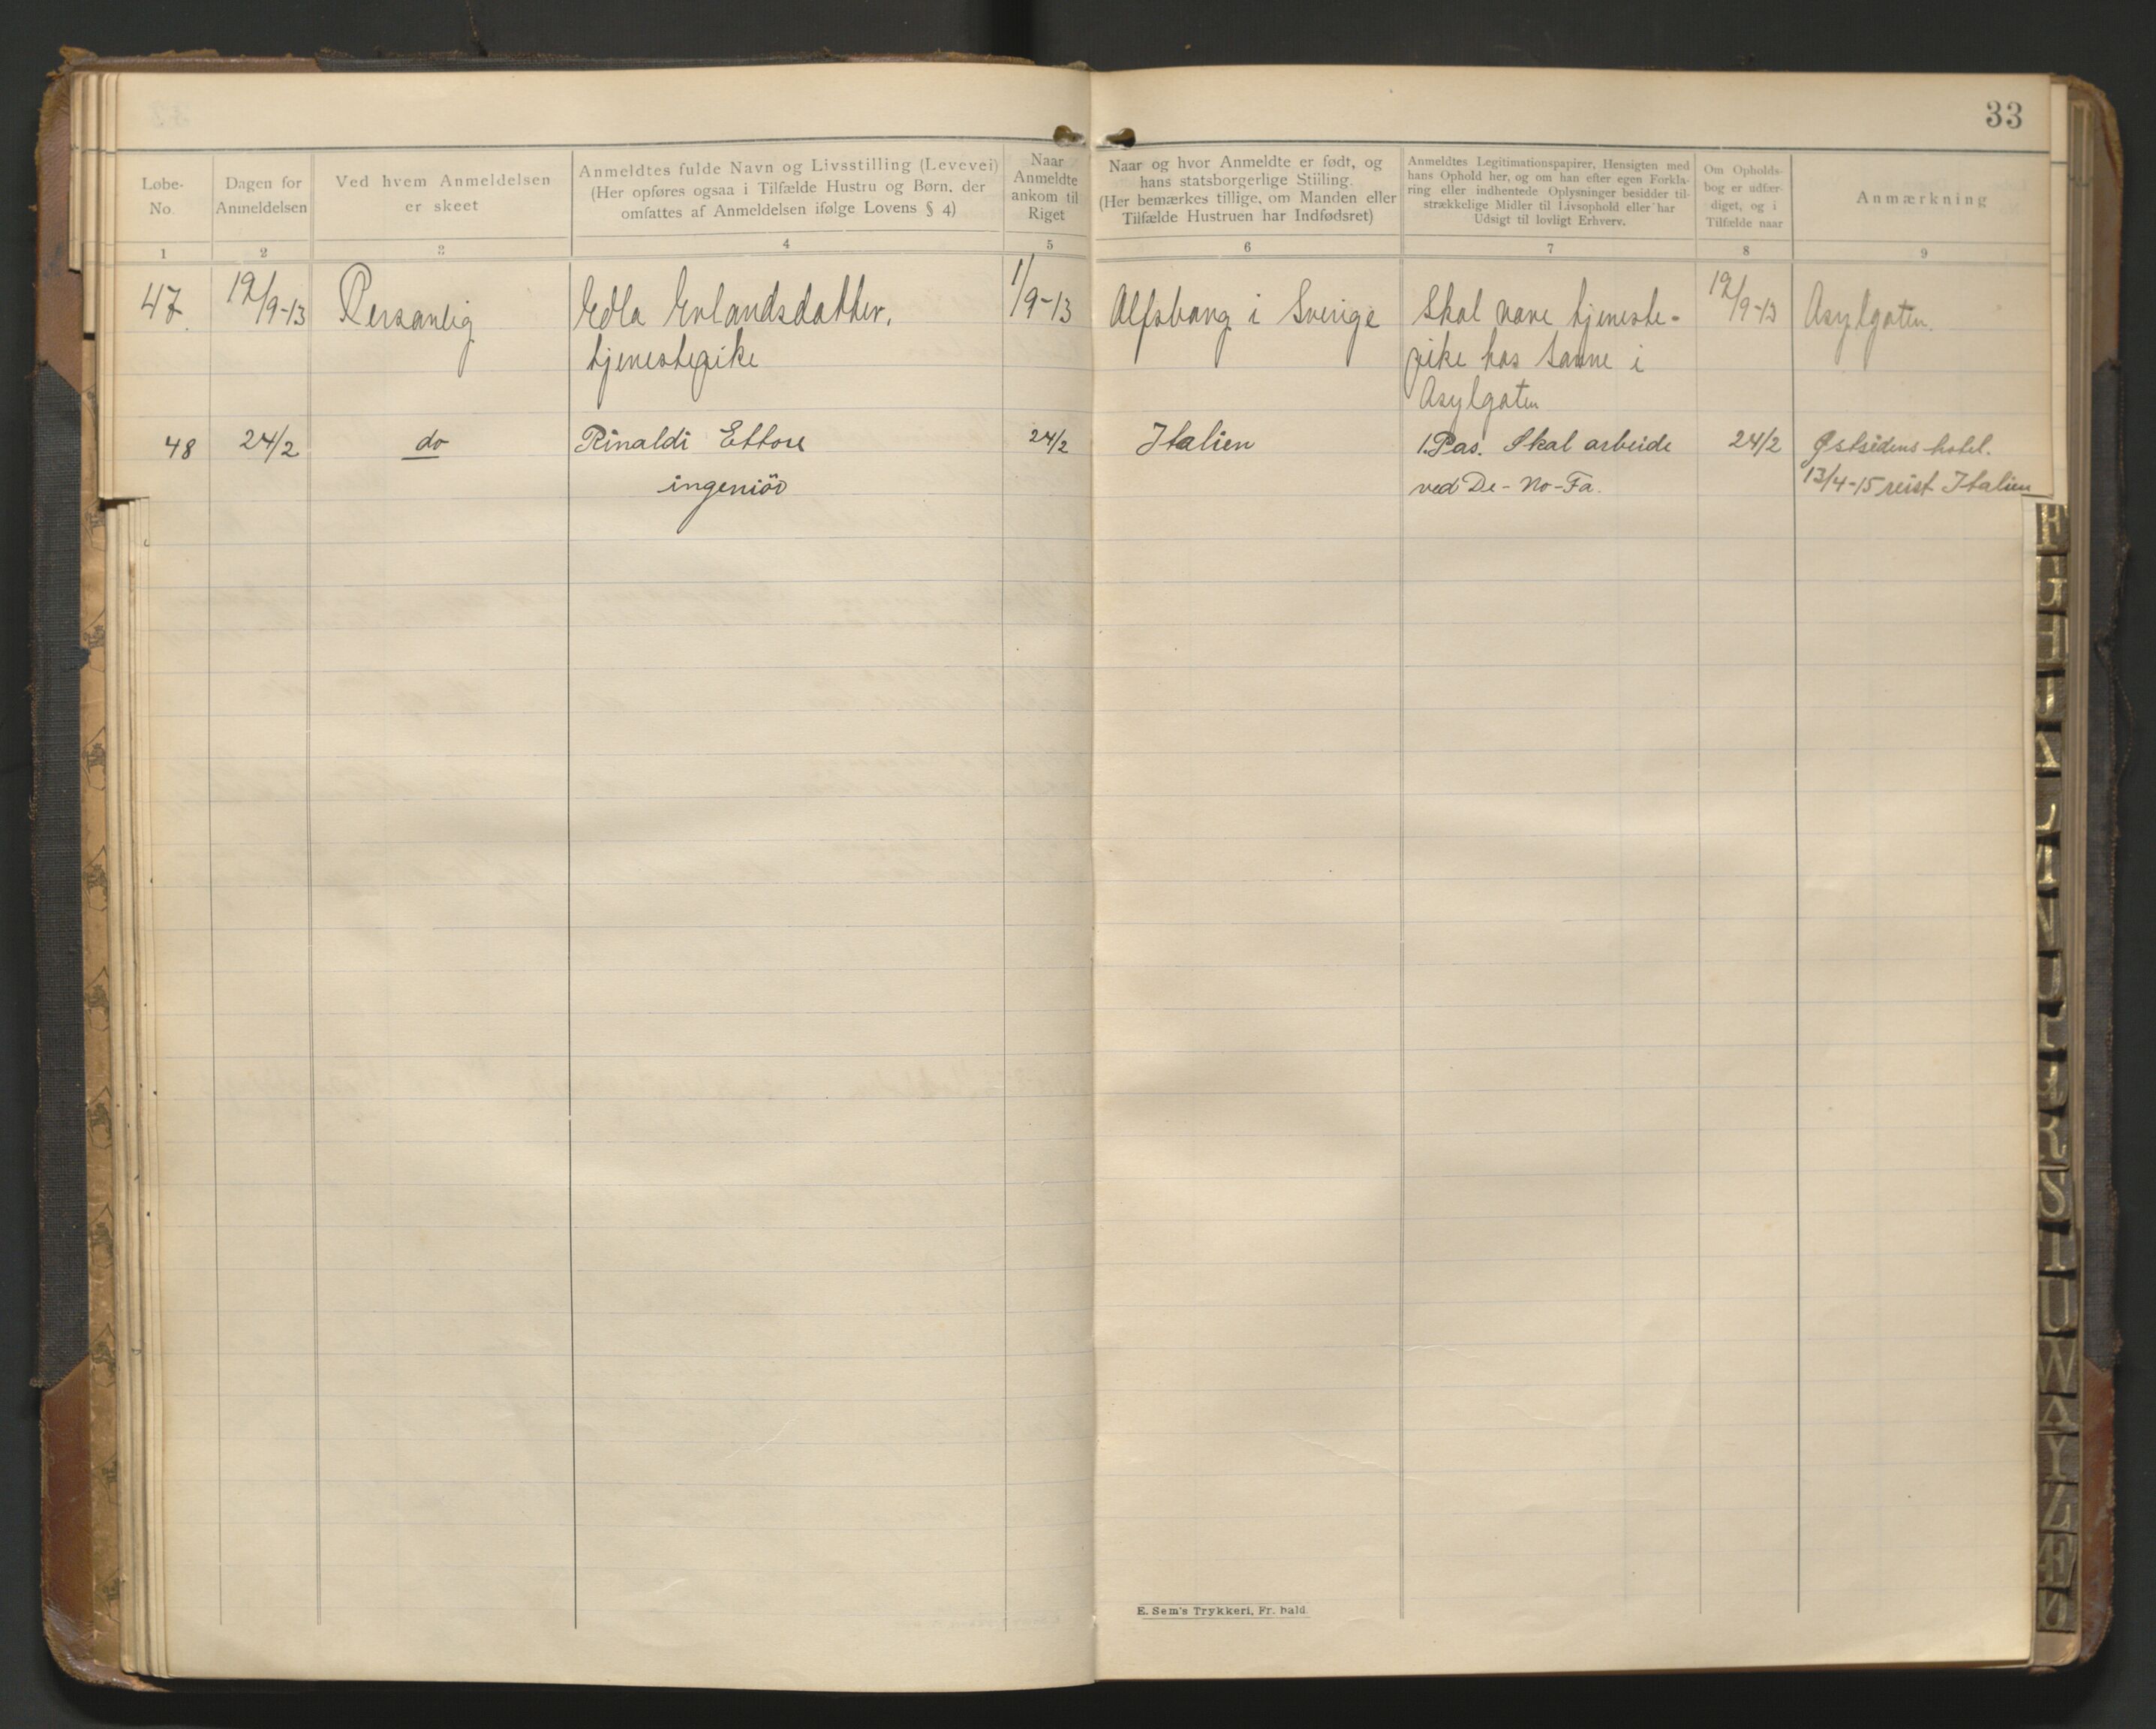 33
Løbe-
No.
Dagen for
Anmeldelsen
Ved hvem Anmeldelsen
er skeet
Anmeldtes fulde Navn og Livsstilling (Levevei)
(Her opføres ogsaa i Tilfælde Hustru og Børn, der
omfattes af Anmeldelsen ifølge Lovens § 4)
Naar
Anmeldte
ankom til
Riget
Naar og hvor Anmeldte er født, og
hans statsborgerlige Stiiling.
(Her bemærkes tillige, om Manden eller
Tilfælde Hustruen har Indfødsret)
Anmeldtes Legitimationspapirer, Hensigten med
hans Ophold her, og om han efter egen Forkla-
ring eller indhentede Oplysninger besidder til-
strækkelige Midler til Livsophold eller har
Udsigt til lovligt Erhverv.
Om Opholds-
bog er udfær-
diget, og i
Tilfælde naar
Anmærkning
1 2 3 4 5 6 7 8 9
47 19/9-13 Personlig Edla Erlandsdatter, 1/9-13 Alfsborg i Sverige Skal være tjeneste- 19/9-13 Asylgaten.
tjenestepike pike hos Sanne i
Asylgaten
48 24/2 do Rinaldi Ettore 24/2 Italien 1. Pas. Skal arbeide 24/2 Østsidens hotel.
ingeniör ved De-No-Fa. 13/4-15 reist Italien
F
G
H
I
K
L
M
N
O
P
Q
R
S
T
U
W
X
Y
Z
Æ
Ø
E. Sem's Trykkeri, Fr. hald.